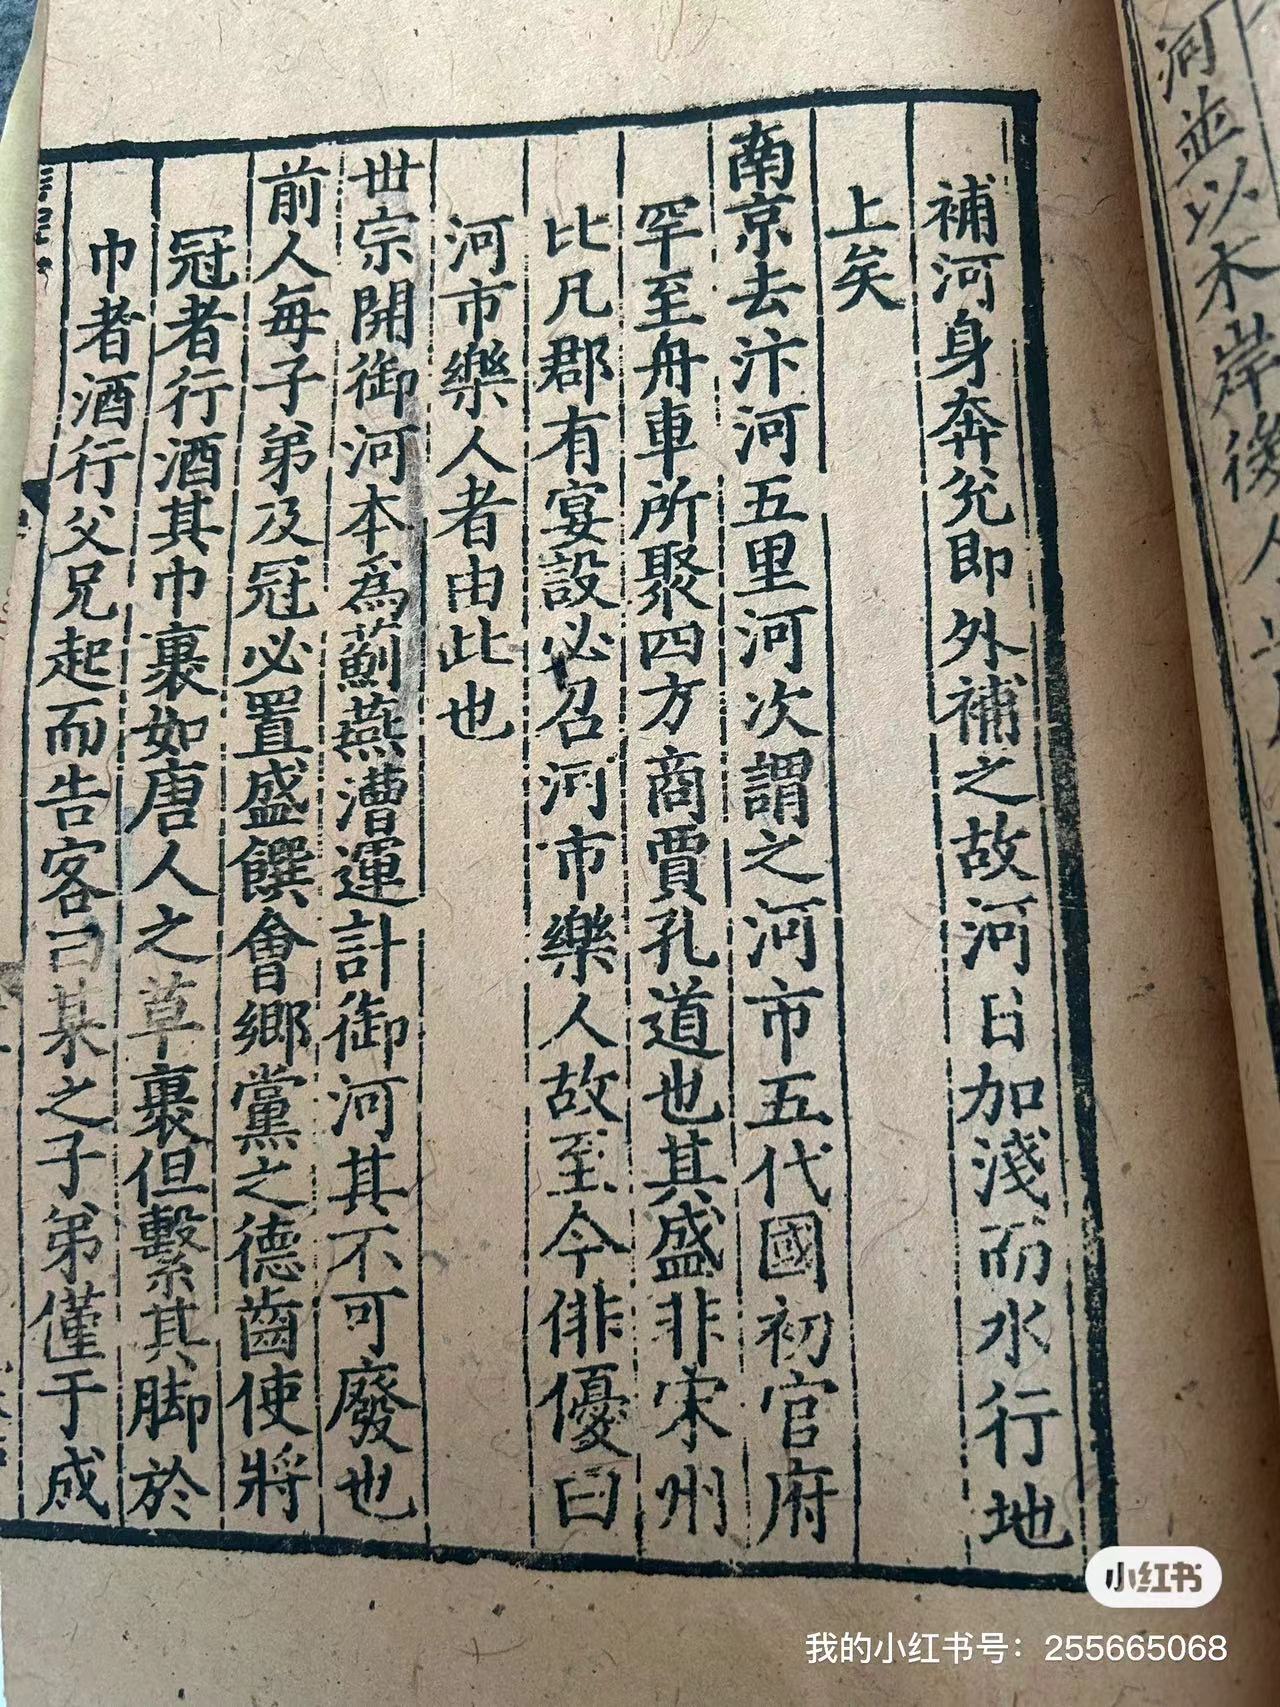 河並以木岸後人
補河身奔兊即外補之故河日加淺而水行地
上矣
南京去汴河五里河次謂之河市五代國初官府
罕至舟車所聚四方商賈孔道也其盛非宋州
比凡郡有宴設必召河市樂人故至今俳優曰
河市樂人者由此也
世宗開御河本爲薊燕漕運計御河其不可廢也
前人每子弟及冠必置盛饌會鄉黨之德齒使將
冠者行酒其巾裹如唐人之草裹但繫其脚於
巾者酒行父兄起而告客曰某之子弟僅于成
小红书
我的小红书号：255665068